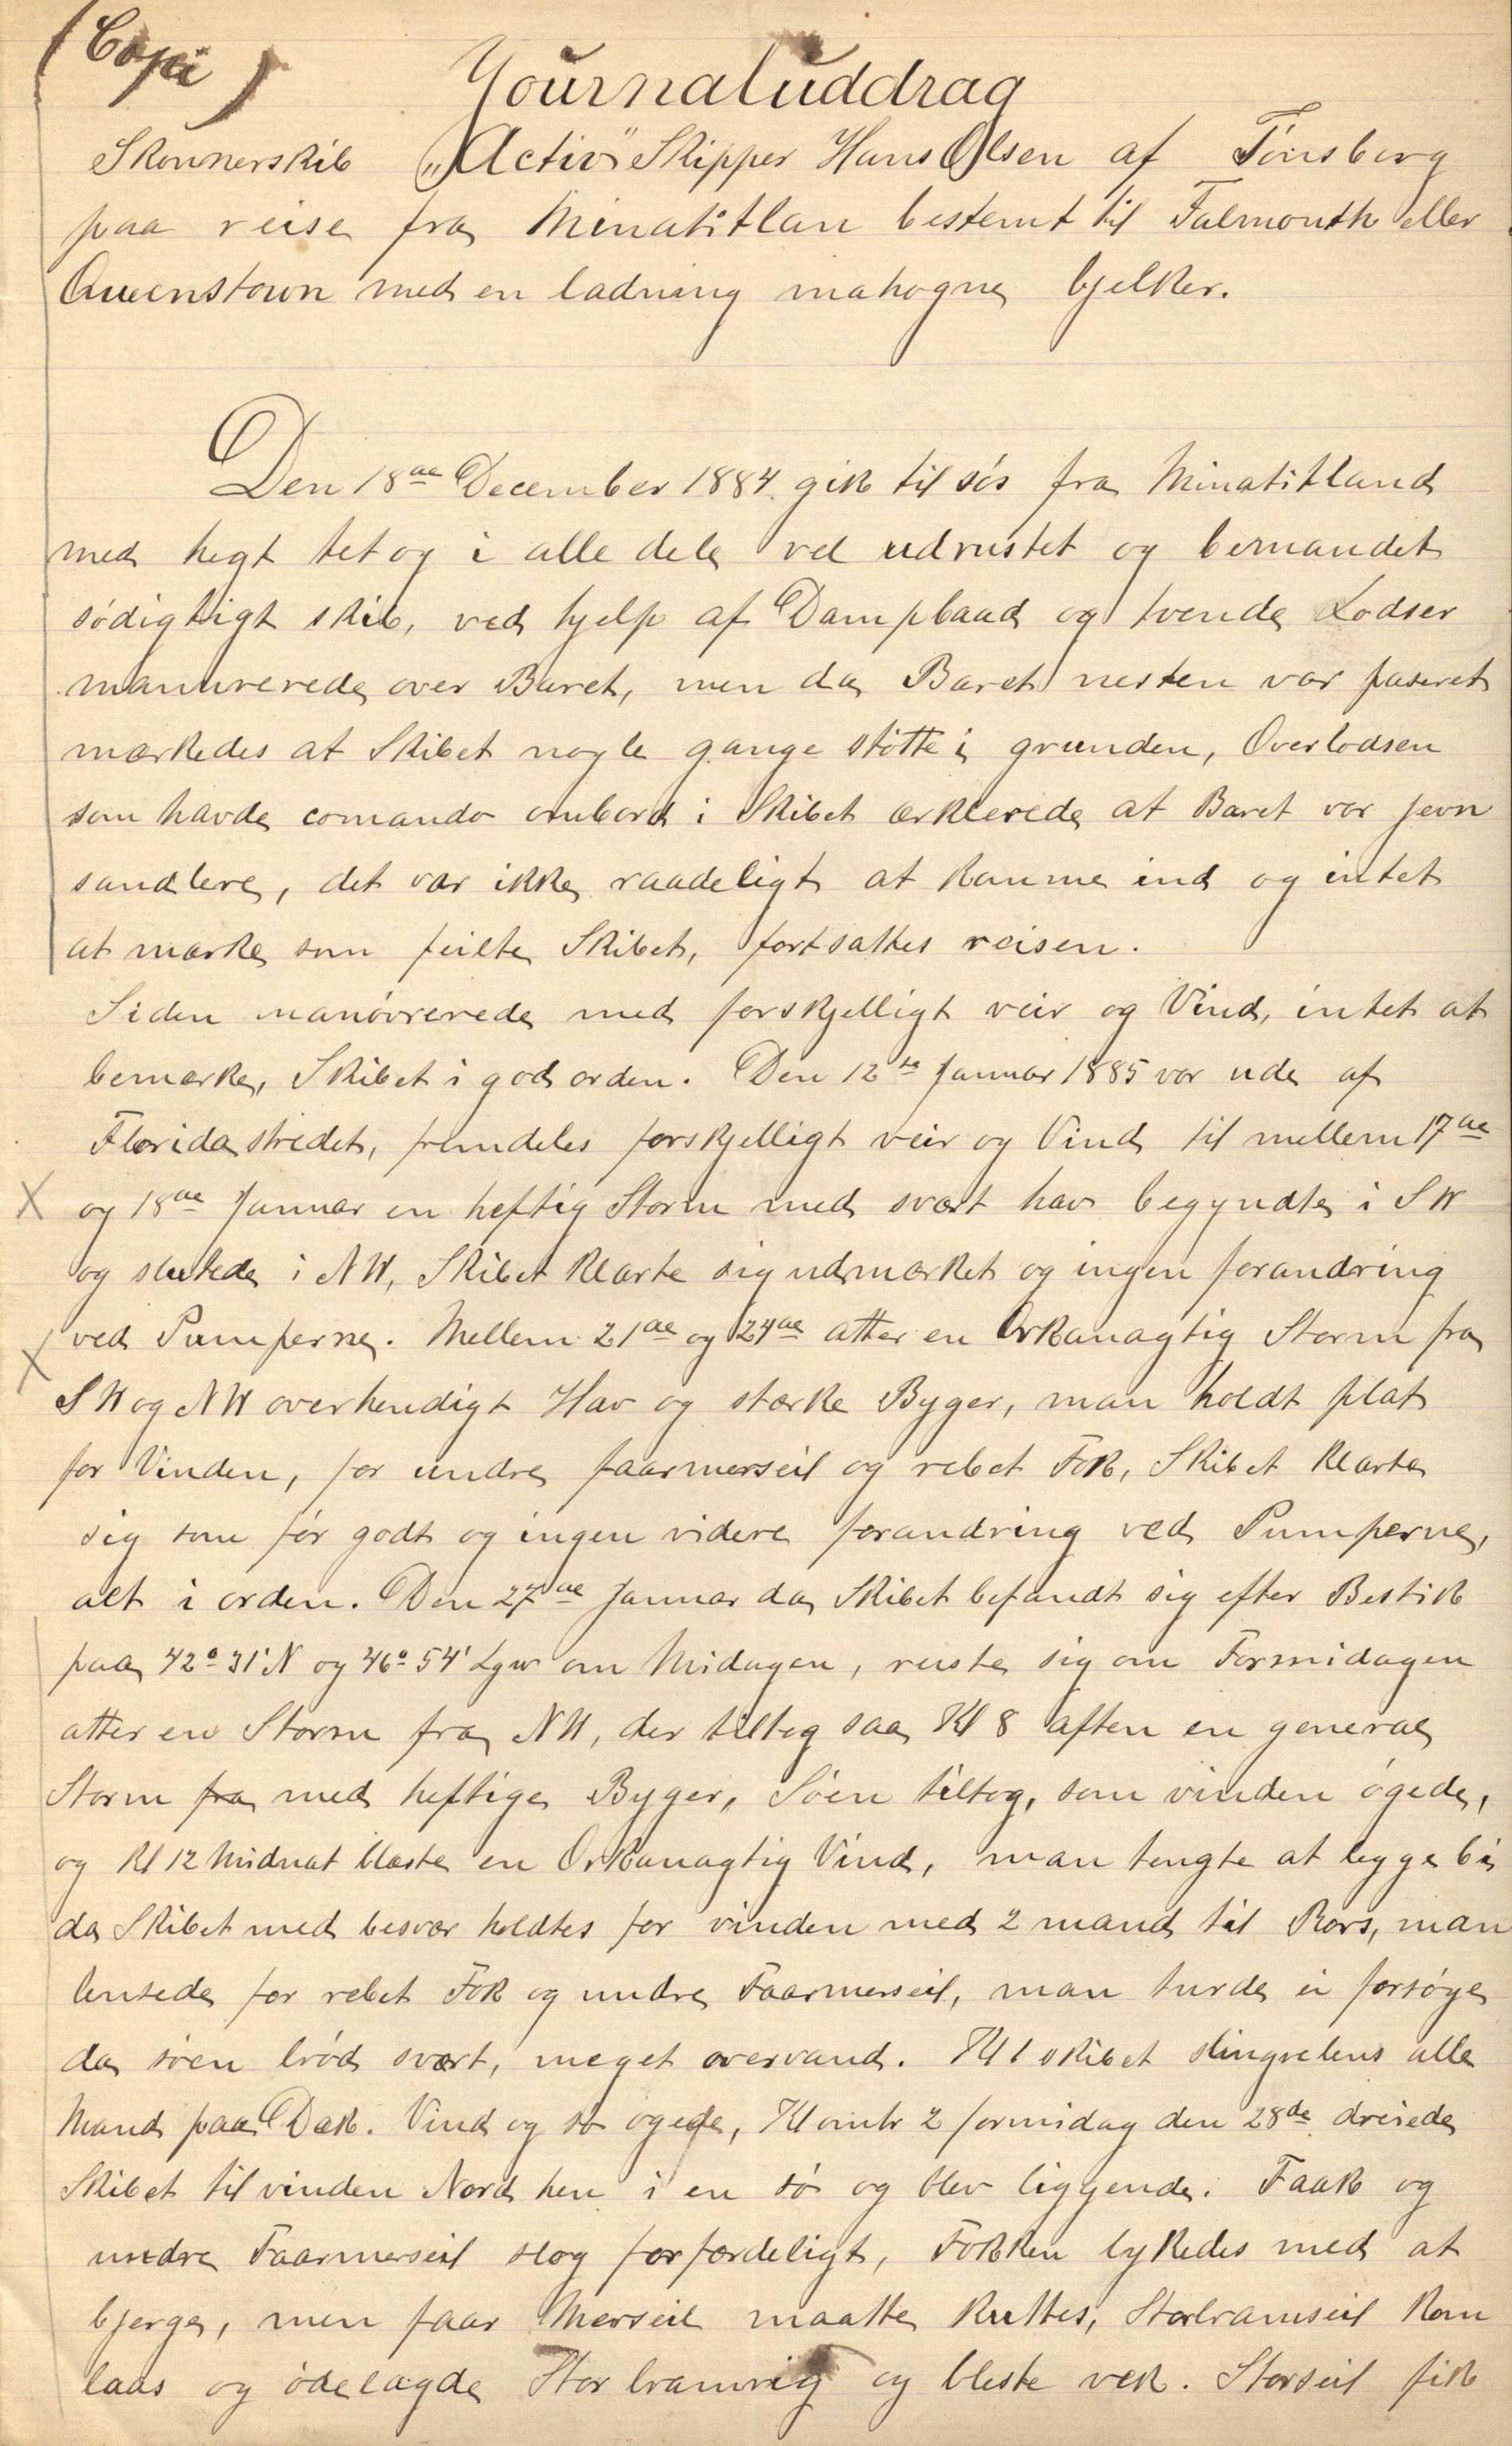 (Copi)
Journaluddrag
Skonnerskib "Activ" Skipper Hans Olsen af Tönsberg
paa reise fra Minatitlan bestemt til Falmouth eller
Queenstown med en ladning mahogne bjelker.
Den 18de December 1884 gik til sös fra Minatitland
med tegt tet og i alle dele vel udrustet og bemandet
södigtigt skib, ved hjelp af Dampbaad og tvende Lodser
manuvrerede over Baret, men da Baret nesten var paseret
mærkedes at Skibet nogle gange stötte i grunden, Overlodsen
som havde comando ombord i Skibet ærklerede at Baret var jevn
sandlere, det var ikke raadeligt at komme ind og intet
at mærke som feilte Skibet, fortsattes reisen.
Siden manövrerede med forskjelligt veir og Vind, intet at
bemærke, Skibet i god orden. Den 12te Januar 1885 var ude af
Floridastredet, fremdeles forskjelligt veir og Vind til mellem 17de
X og 18de Januar en heftig Storm med svært hav begyndte i SW
og sluttede i NW, Skibet klarte sig udmærket og ingen forandring
X ved Pumperne. Mellem 21de og 24de atter en Orkanagtig Storm fra
SW og NW overhendigt Hav og stærke Byger, man holdt plat
for Vinden, for undre faarmerseil og rebet Fok, Skibet klarte
sig som för godt og ingen videre forandring ved Pumperne,
alt i orden. Den 27de Januar da Skibet befandt sig efter Bestik
paa 42° 31' N og 46° 54' Lgw om Midagen, reiste sig om Formidagen
atter en Storm fra NW, der tiltog saa Kl 8 aften en general
Storm fra med heftige Byger, Söen tiltog, som vinden ögede,
og Kl 12 Midnat blæste en Orkanagtig Vind, man tengte at legge bi
da Skibet med besvær holdtes for vinden med 2 mand til Rors, man
lensede for rebet Fok og undre Faarmerseil, man turde ei forsöge
da söen bröd svært, meget overvand. Kl 1 skibet slingrelens alle
Mand paa Dæk. Vind og sö ögede, Kl omtr 2 formidag den 28de dreiede
Skibet til vinden Nord hen i en sö og blev liggende. Faak og
undre Faarmerseil slog forfærdeligt, Fokken lykedes med at
bjerge, men faar Merseil maatte kuttes, Storbramseil kom
laas og ödelagde Storbramrig og bleste vek. Storseil fik